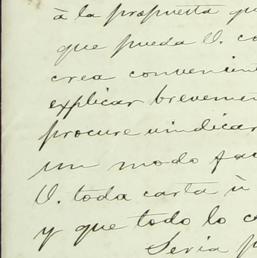 à la propuesta qu
que pueda V. co
crea convenien
explicar breveme
procure vindicar
un modo fa
V. toda carta ù
y que todo lo c
Seria p